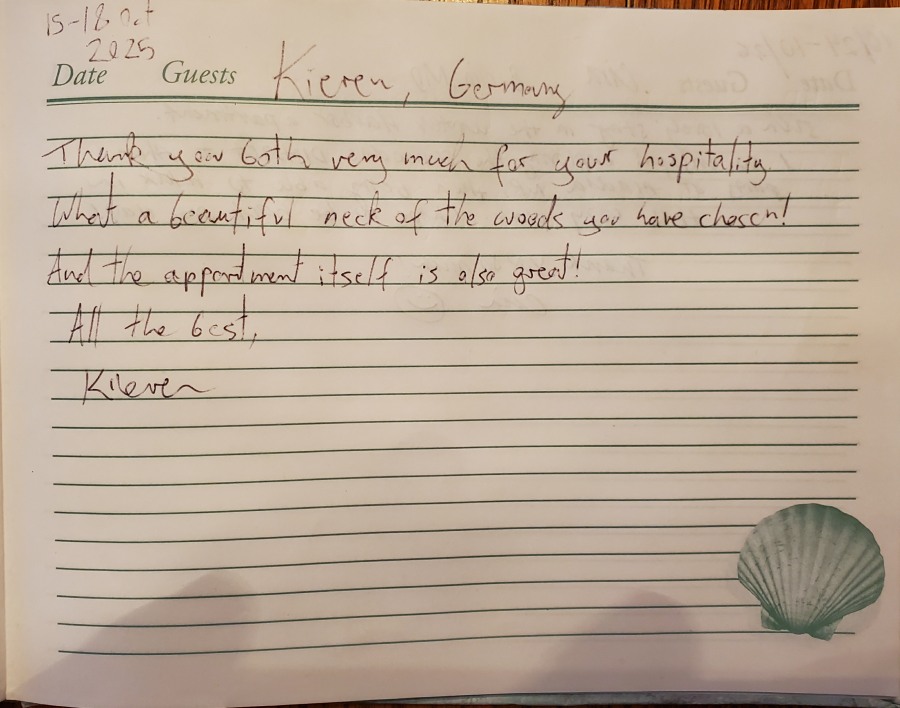 15-18 Oct
2025
Date Guests Kieren, Germany
Thank you both very much for your hospitality.
What a beautiful neck of the woods you have chosen!
And the appartment itself is also great!
All the best,
Kieren